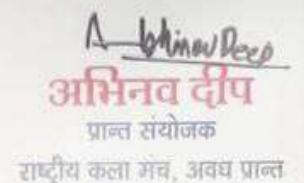 Abhinav Deep
अभिनव दीप
प्रान्त संयोजक
राष्ट्रीय कला मंच, अवध प्रान्त